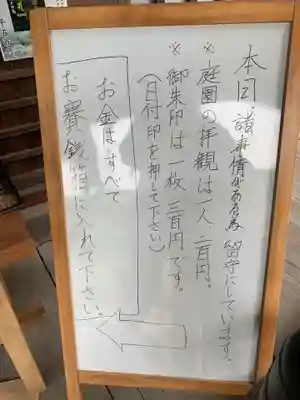 本日、諸事情がある為留守にしています。
※庭園の拝観は一人二百円。
※御朱印は一枚三百円です。
(日付印を押して下さい)
お金はすべて
お賽銭箱に入れて下さい。